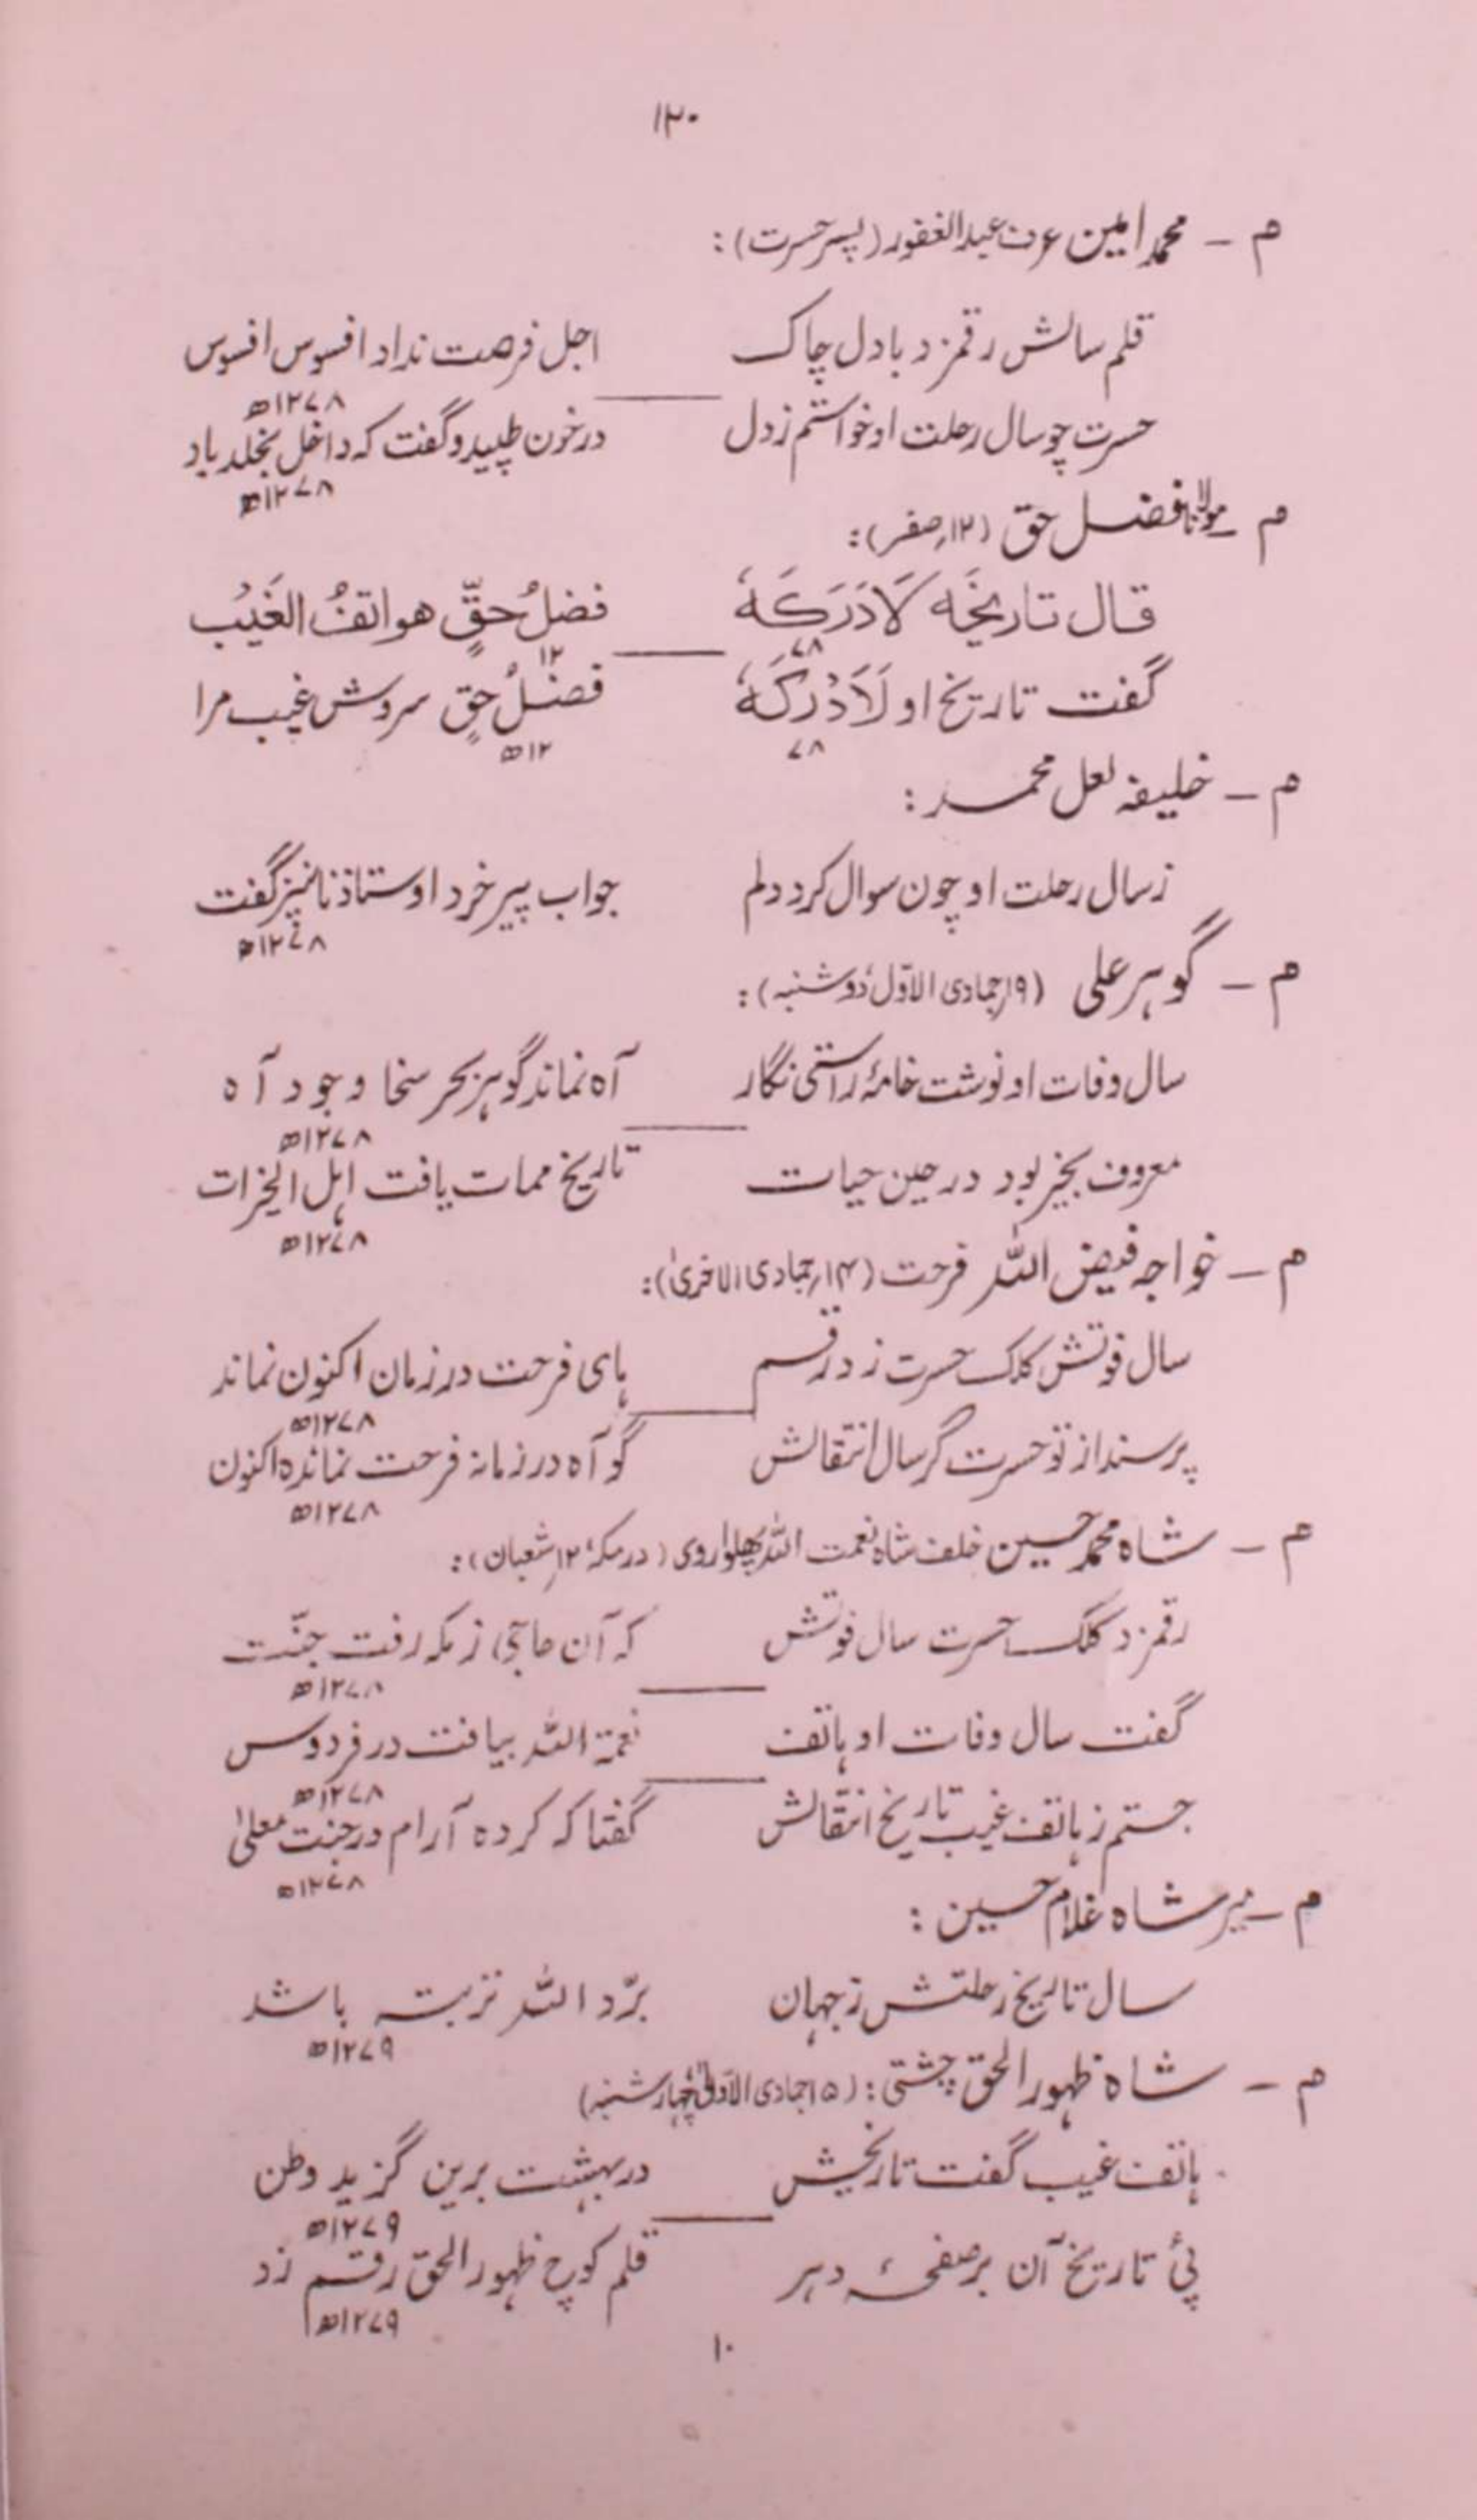 ۱۲۰
م ـ محمد امین عرف عبدالغفور (پسر حسرت) :
قلم سالش رقمزد بادل چاک اجل فرصت نداد افسوس افسوس
۱۲۷۸ھ
حسرت چو سال رحلت او خواستم زدل درخون طپید و گفت که داخل بخلد باد
۱۲۷۸ھ
م ـ مولانا فضل حق (۱۲؍صفر) :
قال تاریخَه لَادَرَکَهٗ فضلُ حقٍّ هواتفُ الغَیْب
۷۸ ۱۲
گفت تاریخ او لَاَدْرَکَهٗ فضلُ حقٍ سروش غیب مرا
۷۸ ۱۲ھ
م ـ خلیفہ لعل محمد :
ز سال رحلت او چون سوال کرد دلم جواب پیر خرد اوستاذنا نیز گفت
۱۲۷۸ھ
م ـ گوہر علی (۱۹؍جمادی الاوّل، دوشنبہ) :
سال وفات او نوشت خامۂ راستی نگار آه نماند گوہر بحر سخا وجود آه
۱۲۷۸ھ
معروف بخیر بود در حین حیات تاریخ ممات یافت اہل الخیرات
۱۲۷۸ھ
م ـ خواجہ فیض اللہ فرحت (۱۴؍جمادی الاخریٰ) :
سال فوتش کلک حسرت زد رقم ہای فرحت در زمان اکنون نماند
۱۲۷۸ھ
پرسند از تو حسرت گر سال انتقالش گو آه در زمانہ فرحت نمانده اکنون
۱۲۷۸ھ
م ـ شاہ محمد حسین خلف شاہ نعمت اللہ پھلواروی (در مکہ، ۱۲؍شعبان) :
رقمزد کلک حسرت سال فوتش کہ آن حاجی ز مکہ رفت جنّت
۱۲۷۸ھ
گفت سال وفات او ہاتف نعمۃ اللہ بیافت در فردوس
۱۲۷۸ھ
جستم ز ہاتف غیب تاریخ انتقالش گفتا کہ کرده آرام در جنت معلیٰ
۱۲۷۸ھ
م ـ میر شاہ غلام حسین :
سال تاریخ رحلتش ز جہان برّد اللہ تربتہ باشد
۱۲۷۹ھ
م ـ شاہ ظہورالحق چشتی : (۱۵جمادی الاولیٰ، چہارشنبہ)
ہاتف غیب گفت تاریخش در بہشت برین گزید وطن
۱۲۷۹ھ
پئ تاریخ آن بر صفحۂ دہر قلم کوچ ظہورالحق رقم زد
۱۲۷۹ھ
۱۰